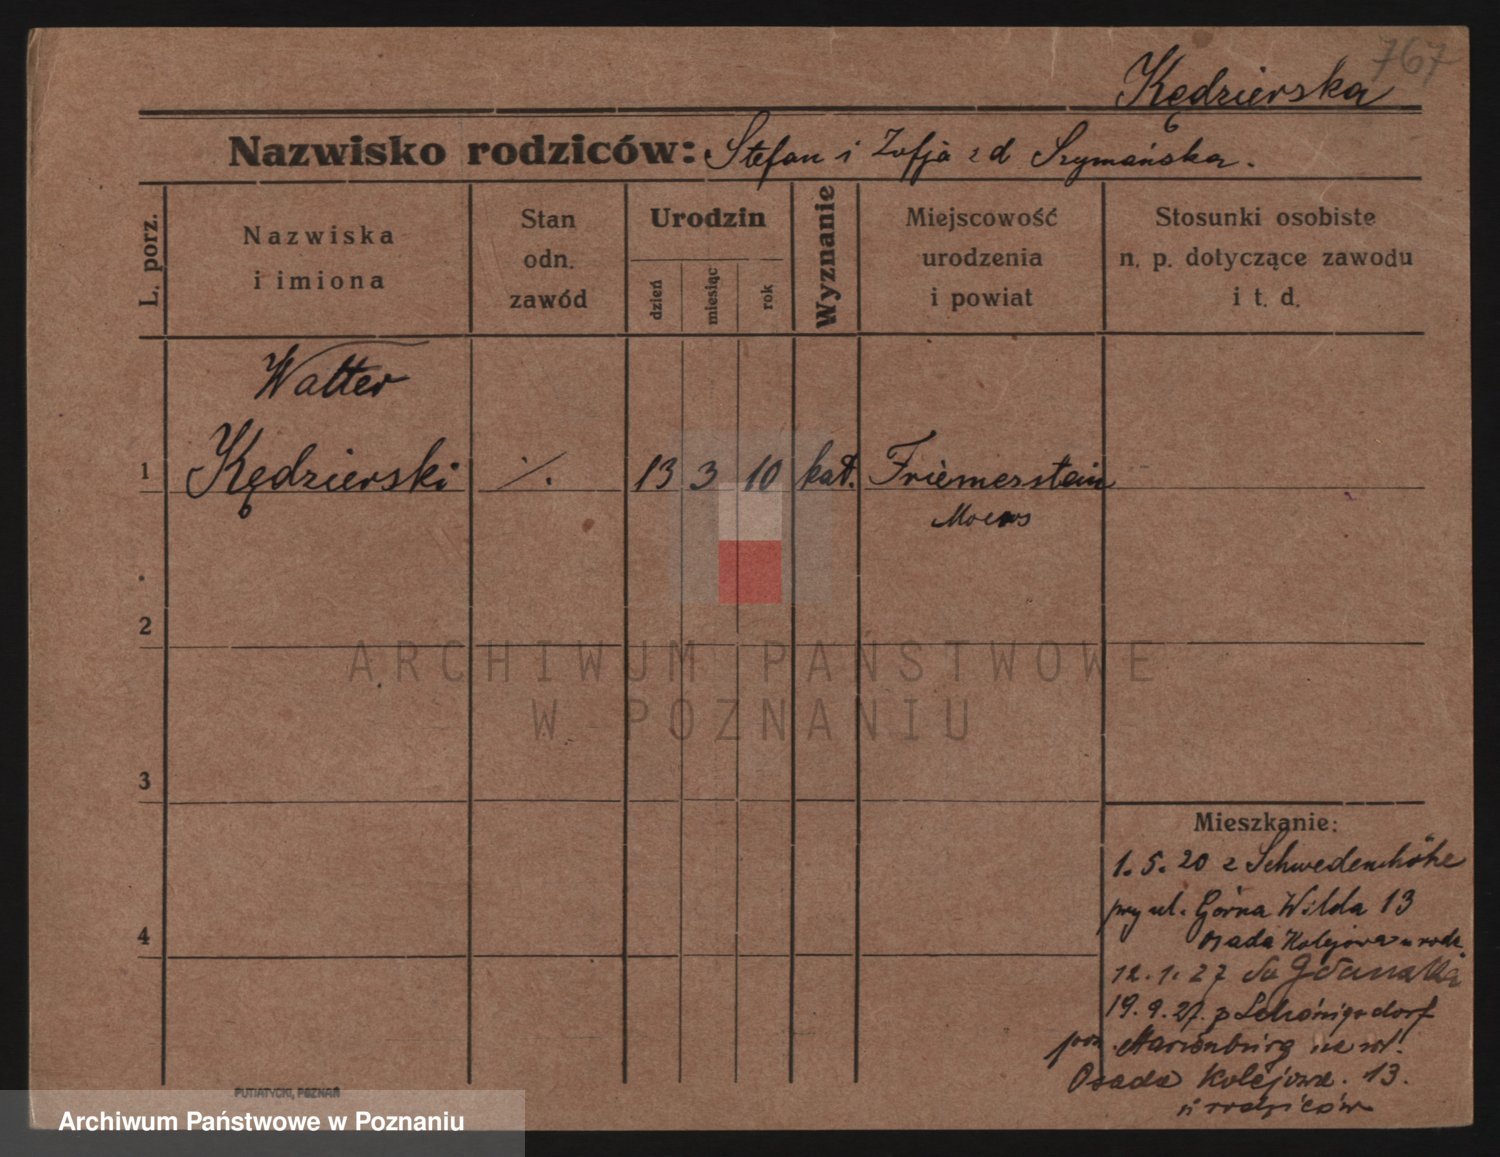 767
Kędzierska
Nazwisko rodziców: Stefan i Zofja z d Szymańska.
L. porz.
Nazwiska
i imiona
Stan
odn.
zawód
Urodzin
dzień
miesiąc
rok
Wyznanie
Miejscowość
urodzenia
i powiat
Stosunki osobiste
n. p. dotyczące zawodu
i t. d.
Walter
1 Kędzierski ./. 13 3 10 kat. Friemerstein
Moers
2
ARCHIWUM PAŃSTWOWE
W POZNANIU
3
Mieszkanie:
1.5.20 z Schwedenhöhe
przy ul. Górna Wilda 13
4
osada Kolejowa u rodz.
12.1.27 do Gdańska
19.9.27. p Schönigsdorf
pow. Marienburg na ul.
Osada Kolejowa. 13.
u rodziców
PUTIATYCKI, POZNAŃ
Archiwum Państwowe w Poznaniu